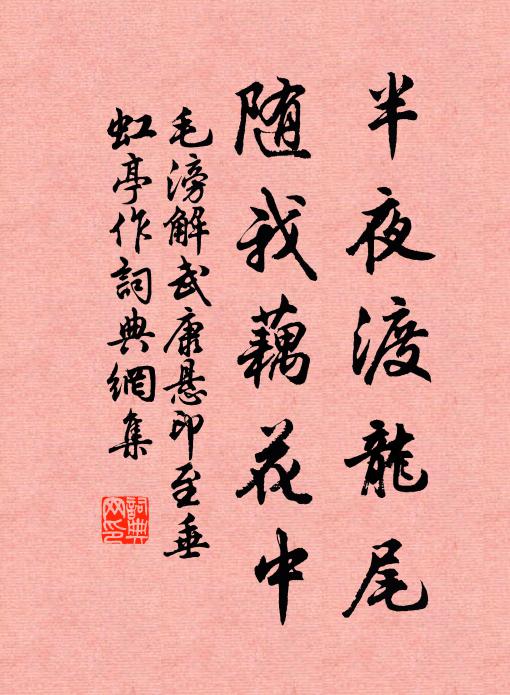 半夜渡龍尾
随我藕花中
毛滂解武康悬印至垂
虹亭作詞典網集
詞典
网印